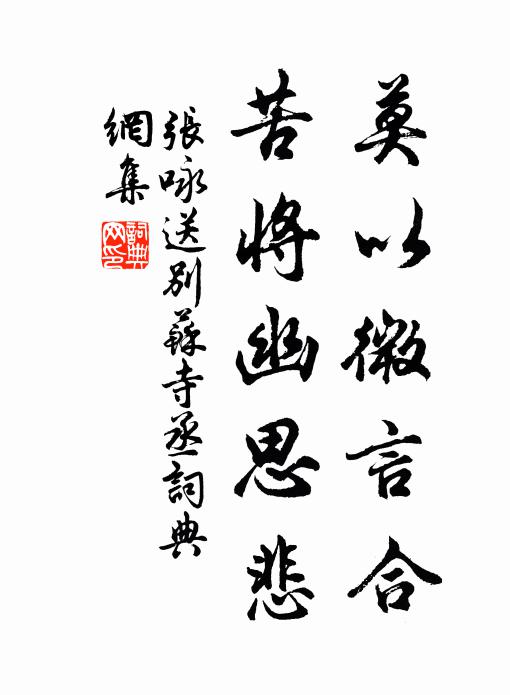 莫以微言合
苦將幽思悲
張咏送別蘇寺丞詞典
網集
詞典網印